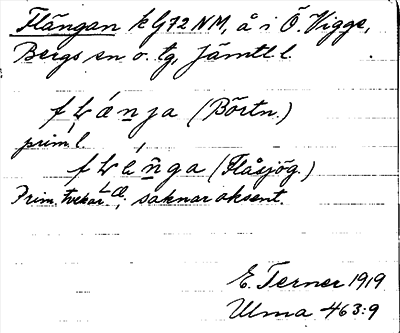 Flängan k G72 NM, å i Ö. Vigge,
Bergs sn o. tg, Jämtl l.
(Börtn.)
prim. l.
(Flåsjög.)
Prim. tvekar, saknar aksent.
E. Terner 1919
Ulma 463:9